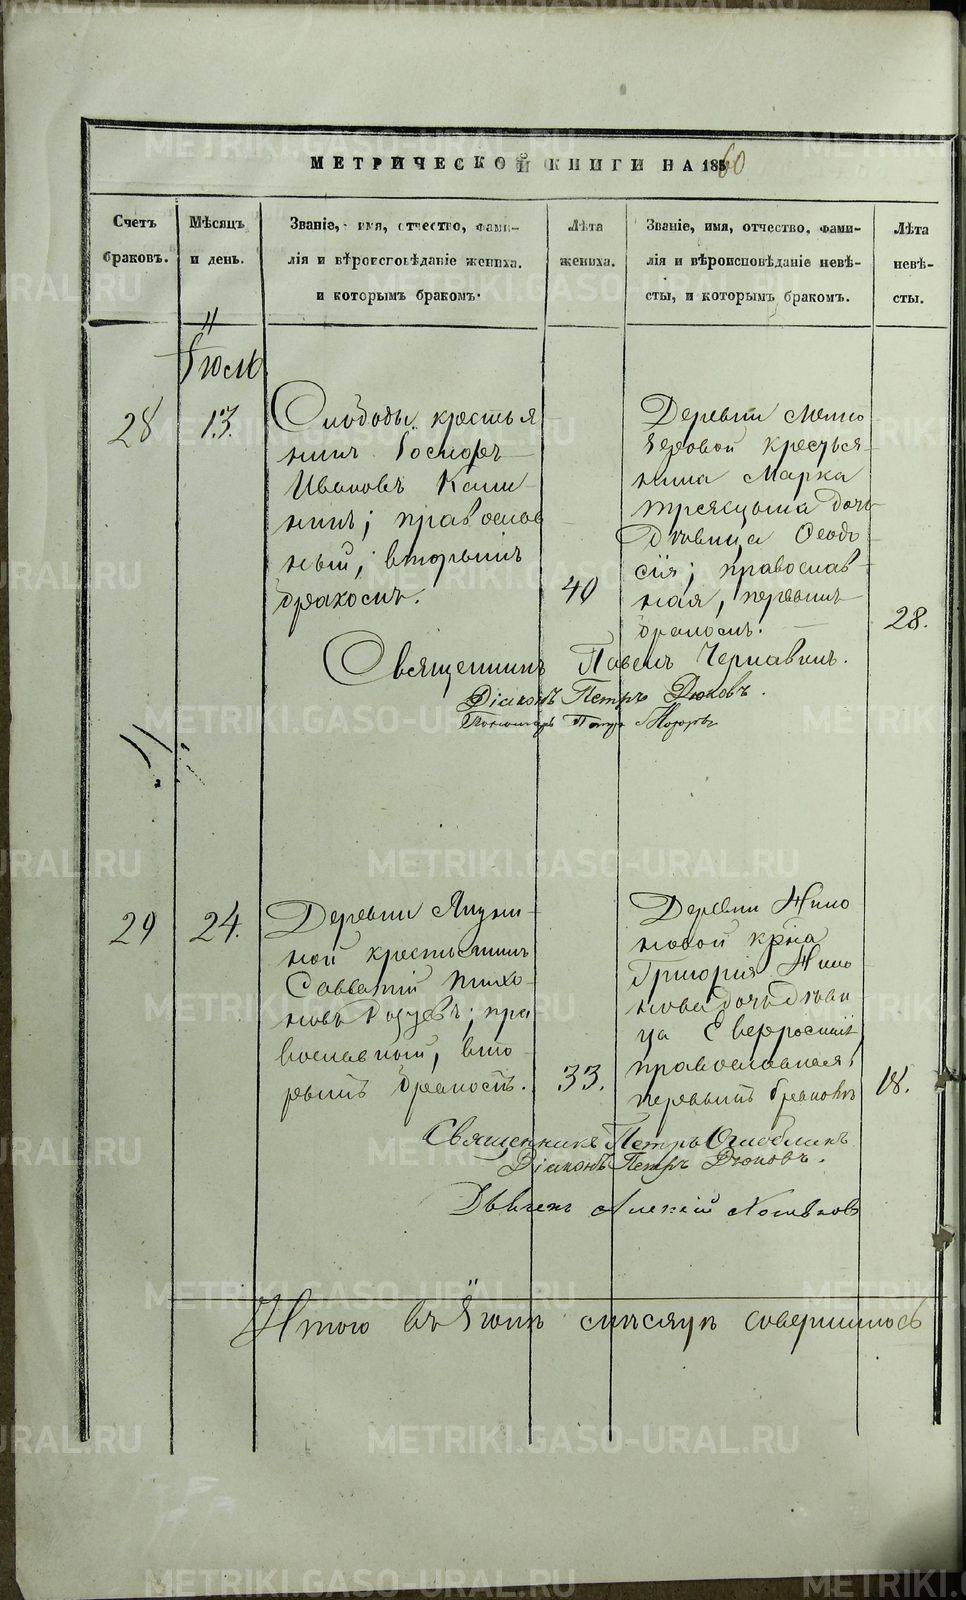 МЕТРИЧЕСКОЙ КНИГИ НА 1860
Счетъ браковъ.
Мѣсяцъ и день.
Званіе, имя, отчество, фами-
лія и вѣроисповѣданіе жениха.
и которымъ бракомъ.
Лѣта жениха.
Званіе, имя, отчество, фами-
лія и вѣроисповѣданіе невѣ-
сты, и которымъ бракомъ.
Лѣта невѣ-
сты.
Іюль
28
13.
Слободы крестья
нинъ
Ивановъ
нинъ; православ
ный; вторымъ
бракомъ.
40
Деревни
крестья-
нина Марка
дочь
Дѣвица Ѳеодо-
сія; православ-
ная, первымъ
бракомъ.
28.
Священникъ Павелъ Чернавинъ.
Діаконъ Петръ Дюковъ.
Пономарь Петръ
29
24.
Деревни
ной крестьянинъ
Савватій Тихо-
новъ; пра
вославный, вто-
рымъ бракомъ.
33.
Деревни
новой
Григорія
нова дочь Дѣви
ца Евфросинія,
православная,
первымъ бракомъ
18.
Священникъ Петръ Оглоблинъ
Діаконъ Петръ Дюковъ.
Алексій
Итого въ Іюлѣ мѣсяцѣ совершилось
METRIKI.GASO-URAL.RU